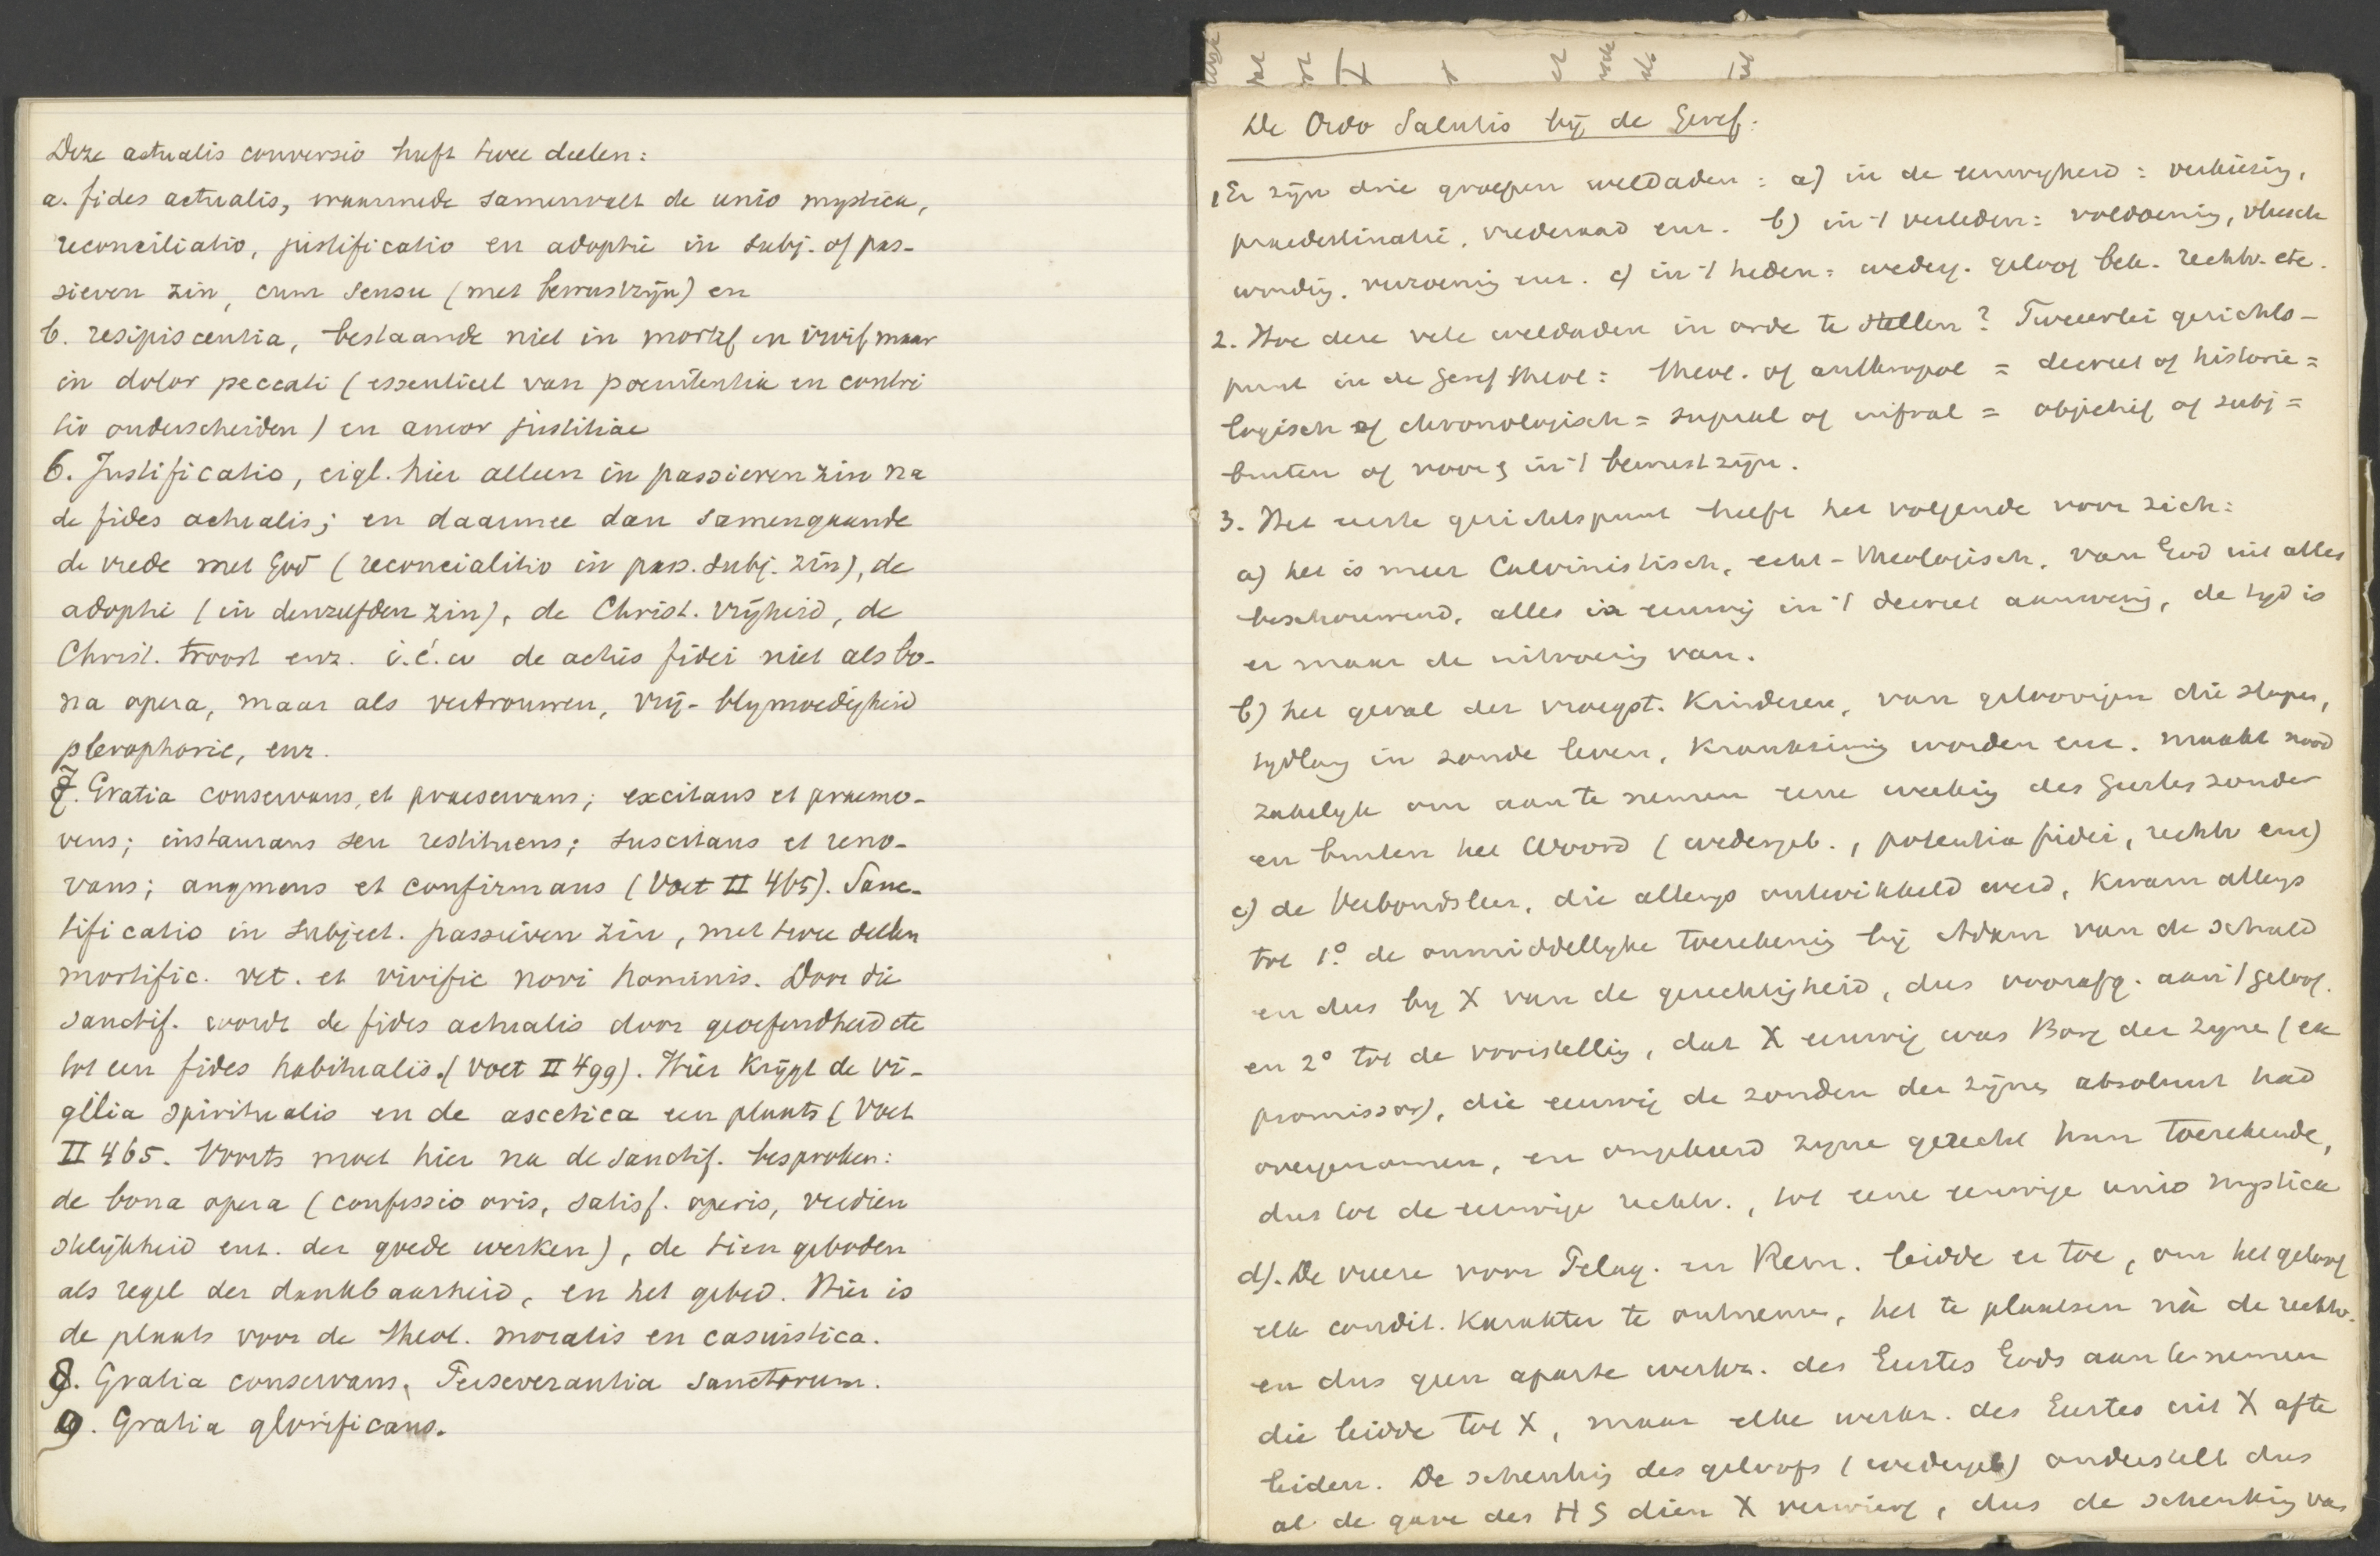 Deze actualis conversio heeft twee deelen:
a. fides actualis, waarmede samenvalt de unio mystica,
reconciliatio, justificatio en adoptie in subj. of pas-
sieven zin, cum sensu (met bewustzijn) en
b. resipiscentia, bestaande niet in mortif en vivif maar
in dolor peccati (essentieel van poenitentia en contri
tio onderscheiden) en amor justitiae
6. Justificatio, eigl. hier alleen in passieven zin na
de fides actualis; en daarmee dan samengaande
de vrede met God (reconcialitio in pass. subj. zin), de
adoptie (in denzelfden zin), de Christ. vrijheid, de
Christ. troost enz. i.é.w de actus fidei niet als bo-
na opera, maar als vertrouwen, vrij- blymoedigheid
plerophorie, enz.
7. Gratia conservans, et praeservans; excitans et praemo-
vens; instaurans seu restituens; suscitans et reno-
vans; augmens et confirmans (Voet II 465). Sanc-
tificatio in subject. passieven zin, met twee deelen
mortific. vet. et vivific novi hominis. Door die
sanctif. wordt de fides actualis door geoefendheid etc
tot een fides habitualis. (Voet II 499). Hier krijgt de vi-
gilia spiritualis en de ascetica een plaats (Voet
II 465. Voorts moet hier na de sanctif. besproken:
de bona opera (confessio oris, satisf. operis, verdien
stelijkheid enz. der goede werken), de tien geboden
als regel der dankbaarheid, en het gebed. Hier is
de plaats voor de theol. moralis en casuistica.
8. Gratia conservans, Perseverantia sanctorum.
9. Gratia glorificans.
De Ordo Salutis bij de Geref:
1 Er zijn drie groepen weldaden: a) in de eeuwigheid: verkiezing,
praedestinatie, vrederaad enz. b) in 't verleden: voldoening, vleesch
wording, verzoening enz. c) in 't heden: wederg. geloof bek. rechtv. etc.
2. Hoe deze vele weldaden in orde te stellen? Tweeerlei gezichts-
punt in de Geref theol: theol. of anthropol = decreet of historie =
logisch of chronologisch = supral of infral = objectief of subj =
buiten of voor & in 't bewustzijn.
3. Het eerste gezichtspunt heeft het volgende voor zich:
a) het is meer Calvinistisch, echt-theologisch, van God uit alles
beschouwend, alles is eeuwig in 't decreet aanwezig, de tyd is
er maar de uitvoering van.
b) het geval der vroegst. kinderen, van geloovigen die slapen,
tydlang in zonde leven, krankzinnig worden enz. maakt nood
zakelyk om aan te nemen eene werking des Geestes zonder
en buiten het Woord (wedergeb., potentia fidei, rechtv enz)
c) de Verbondsleer, die allengs ontwikkeld werd, kwam allengs
tot 1o de onmiddellyke toerekening bij Adam van de schuld
en dus by X van de gerechtigheid, dus voorafg. aan 't geloof.
en 2o tot de voorstelling, dat X eeuwig was Borg der zyne (ex
promissor), die eeuwig de zonden der zijnen absoluut had
overgenomen, en omgekeerd zyne gerecht hun toerekende,
dus tot de eeuwige rechtv., tot eene eeuwige unio mystica
d). De vreeze voor Pelag. en Rem. leidde er toe, om het geloof
elk condit. karakter te ontnemen, het te plaatsen nà de rechtv.
en dus geen aparte werkz. des Geestes Gods aan te nemen
die leidde tot X, maar elke werkz. des Geestes uit X af te
leiden. De schenking des geloofs (wedergeb) onderstelt dus
al de gave des HS dien X verwierf, dus de schenking van